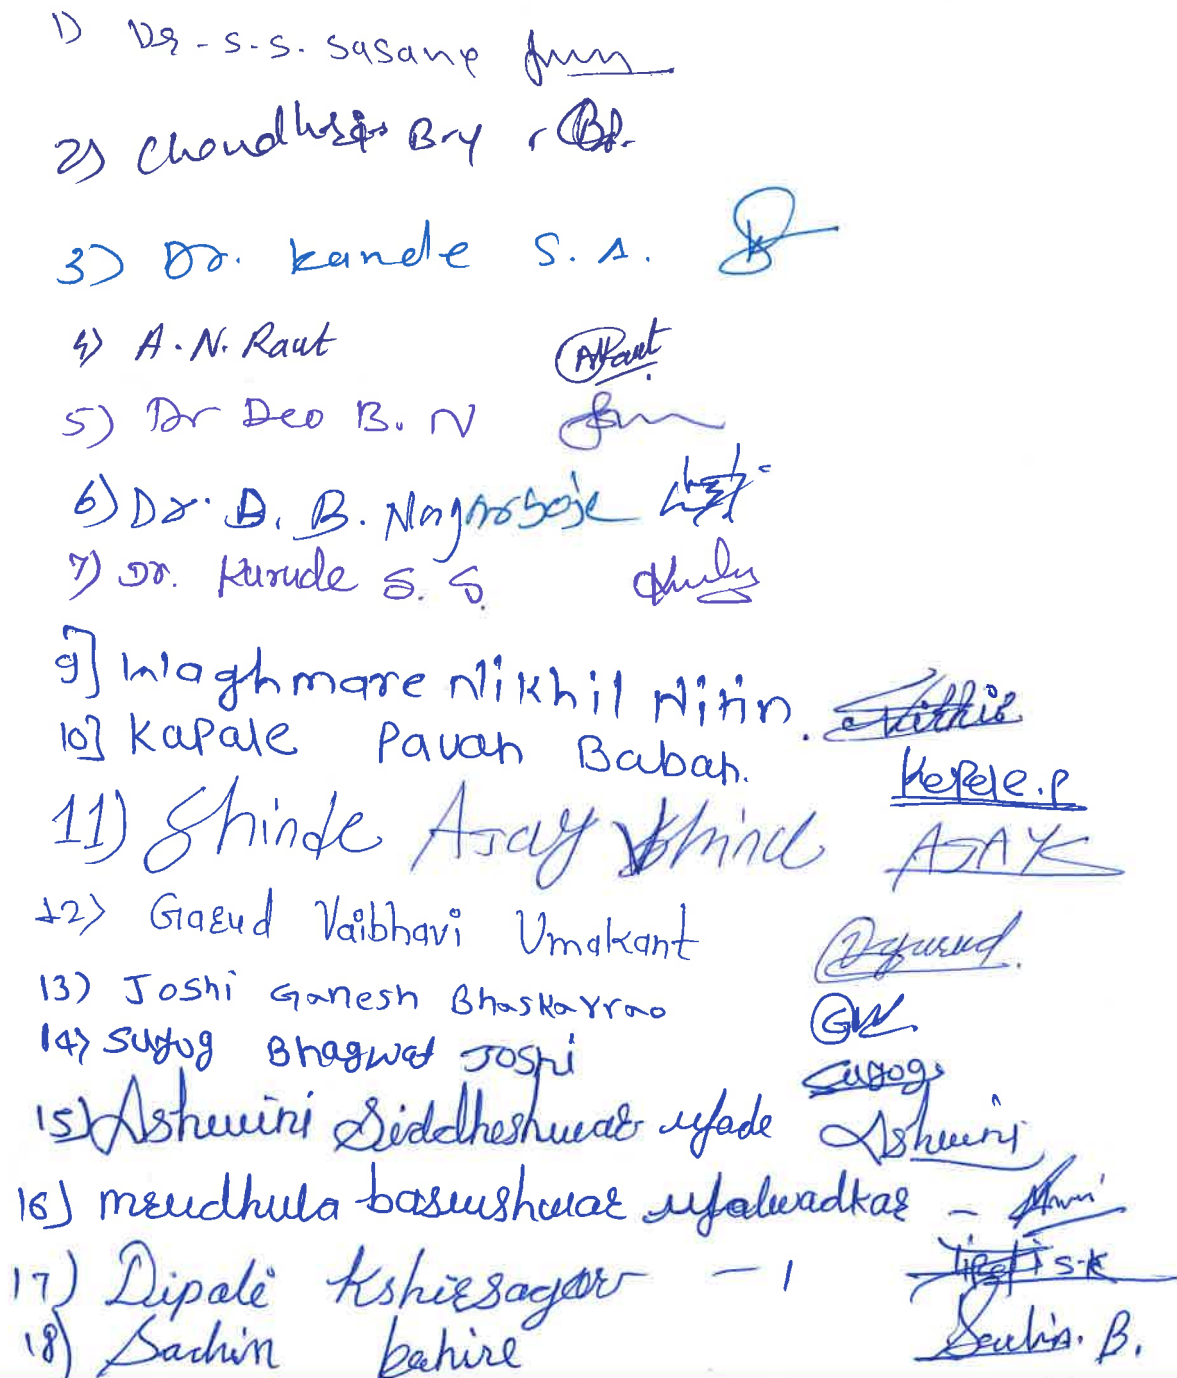 1) Dr - S.S. Sasane
2) B.Y
3) Dr. Kande S. A.
4) A. N. Raut ARaut
5) Dr Deo B. N
6) Dr. D. B. Nagarsoje
7) Dr. Kurude S. S.
9] Waghmare Nikhil Nitin.
10] Kapale Pavan Baban. Kapale.P
11) Shinde Ajay AJAY
12) Garud Vaibhavi Umakant
13) Joshi Ganesh Bhaskarrao
14) Suyog Bhagwat Joshi Suyog
15) Ashwini Siddheshwar Ashwini
16) basweshwar
17) Dipali Kshirsagar - 1 S.K
18) Sachin bahire Sachin. B.